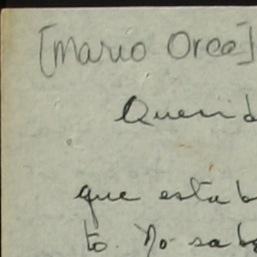 [Mario Orce]
Querid
que estab
to. No sabe